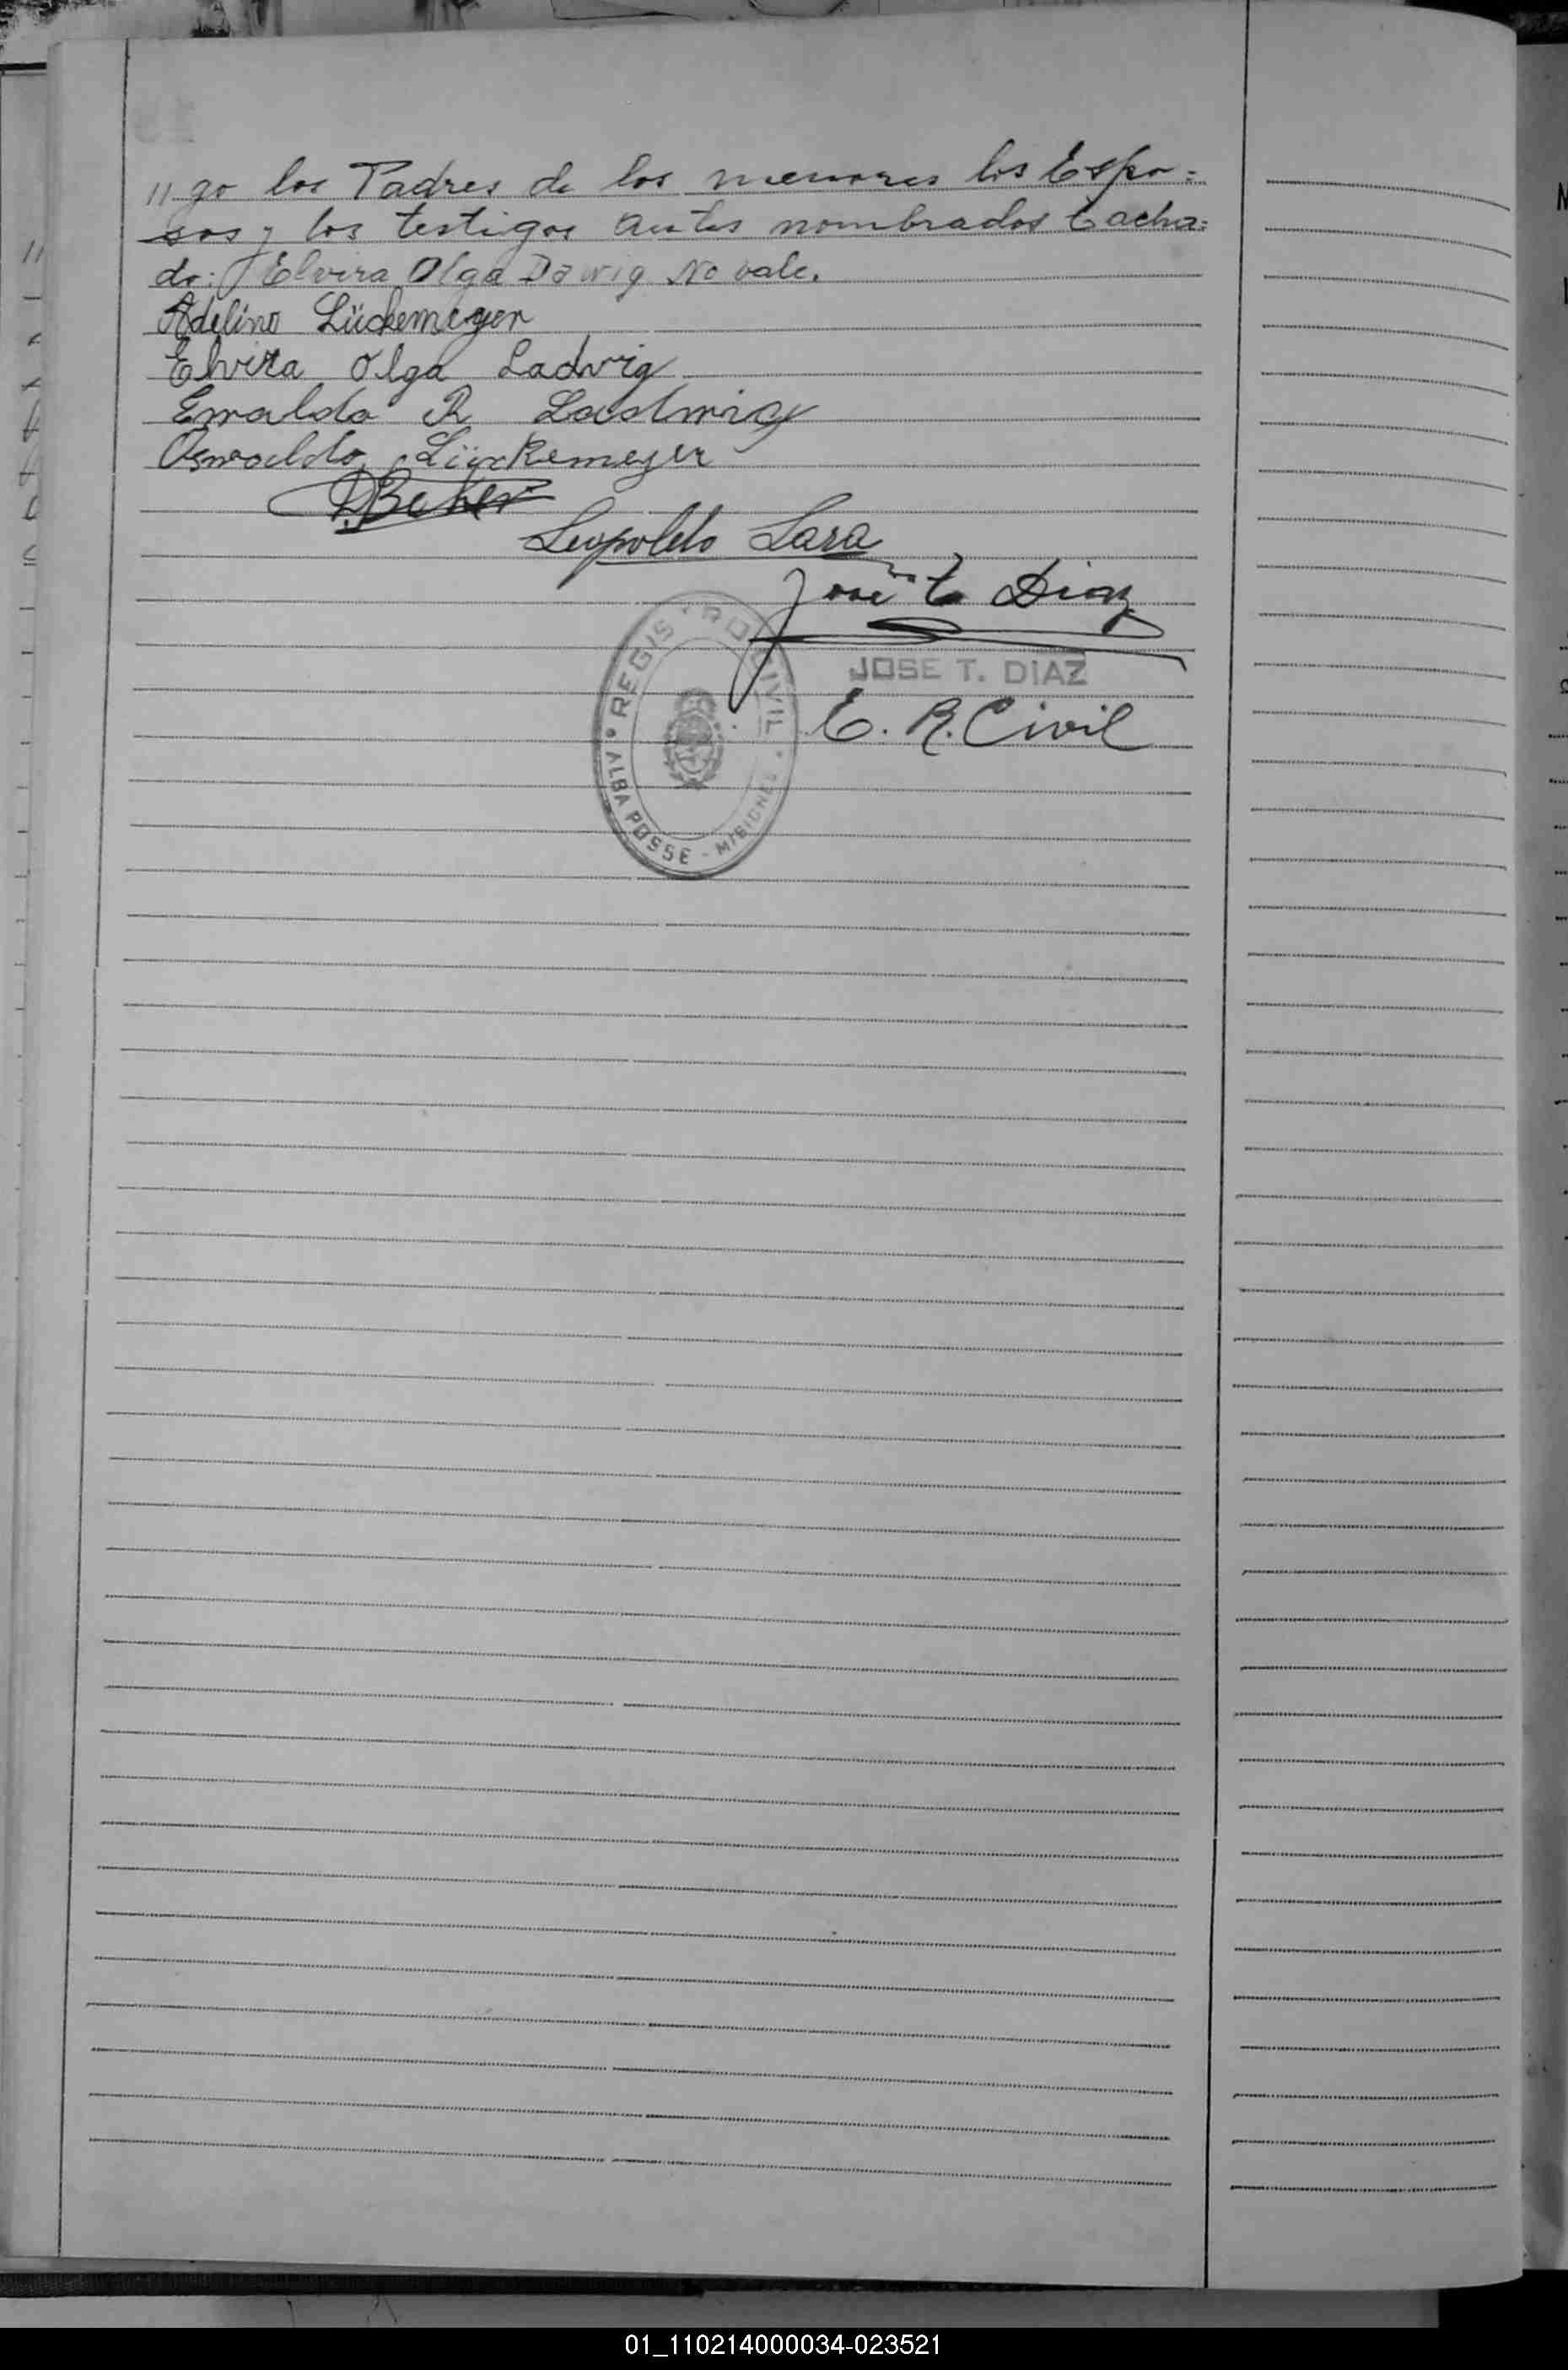 // go los Padres de los menores los Espo=
sos y los testigos antes nombrados Tacha=
do: Elvira Olga Dawig No vale.
Adelino Lückemeyer
Elvira Olga Ladwig
Ewaldo R Ladwig
Oswaldo Lückemeyer
Beker
Leopoldo Lara
José T Diaz
JOSE T. DIAZ
E. R. Civil
REGISTRO CIVIL
ALBA POSSE - MISIONES
01_110214000034-023521